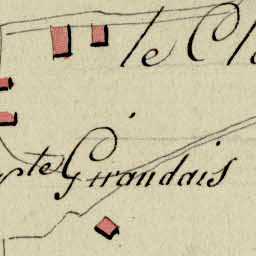 le Cl
pte Giraudais